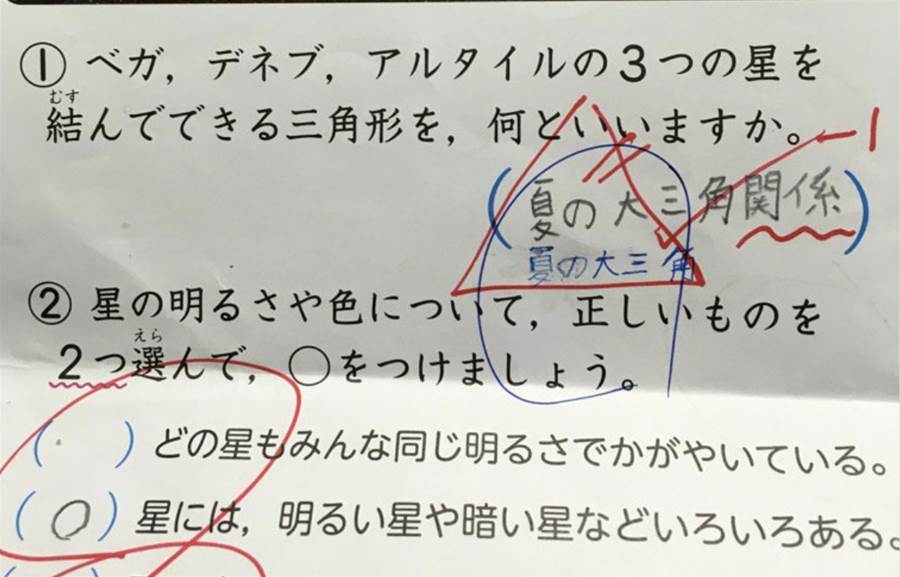 ① ベガ，デネブ，アルタイルの3つの星を
むす
結んでできる三角形を，何といいますか。 -1
(夏の大三角関係)
夏の大三角
② 星の明るさや色について，正しいものを
えら
2つ選んで，○をつけましょう。
( ) どの星もみんな同じ明るさでかがやいている。
(○) 星には，明るい星や暗い星などいろいろある。